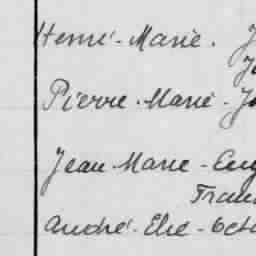 Henri-Marie. J
Jo
Pierre-Marie-Jo
Jean-Marie-Eug
Fran
André-Elie-Octa